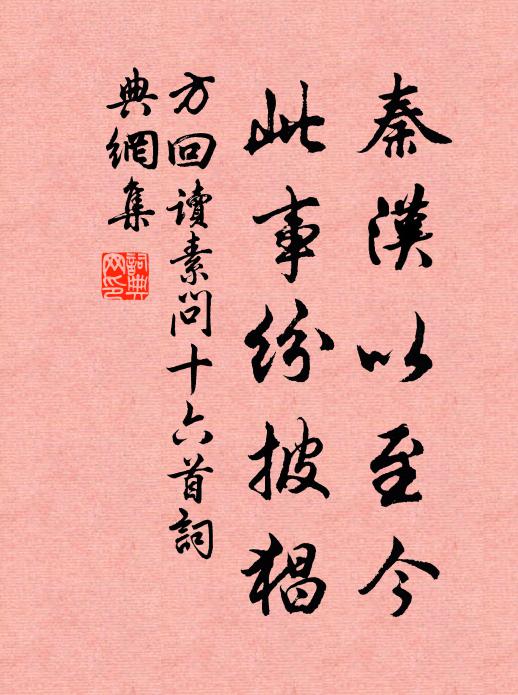 秦漢以至今
此事紛披猖
方回讀素問十六首詞
典網集
詞典網印